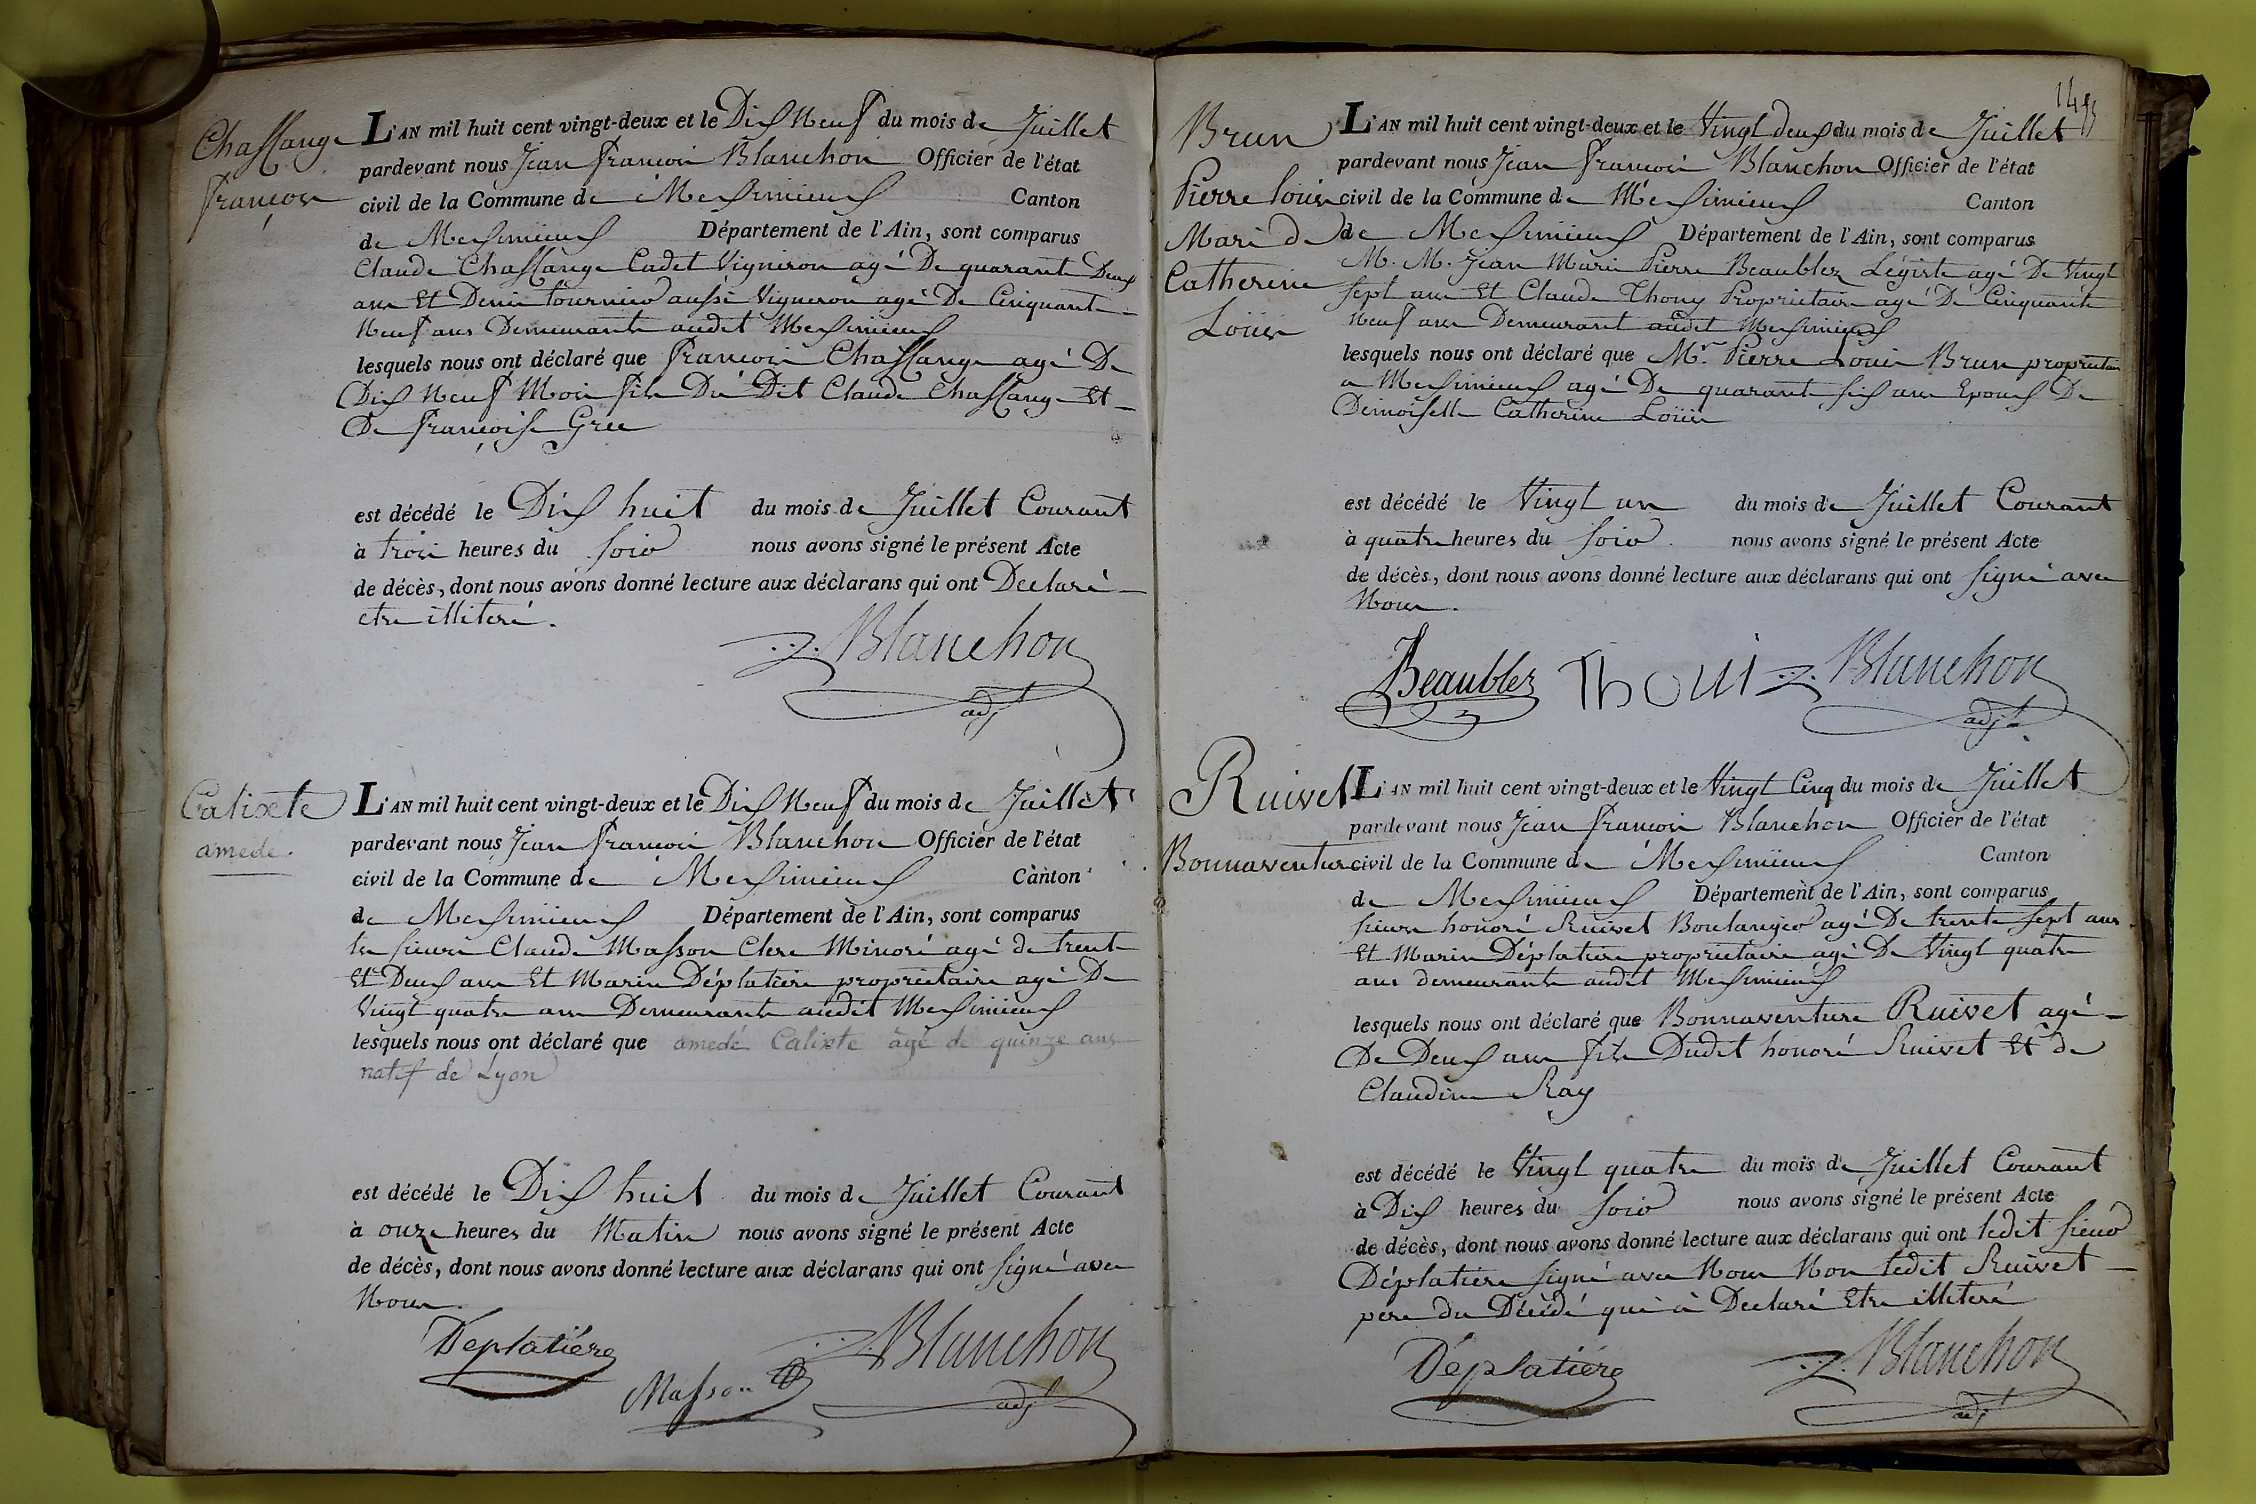 Chassange
François
L'AN mil huit cent vingt-deux et le Dix Neuf du mois de Juillet
pardevant nous Jean françois Blanchon Officier de l'état
civil de la Commune de Meximieux Canton
de Meximieux Département de l'Ain, sont comparus
Claude Chassange Cadet Vigneron agé De quarante Deux
ans Et Denis tournier aussi Vigneron agé De Cinquante
Neuf ans Demeurants audit Meximieux
lesquels nous ont déclaré que françois Chassange agé De
Dix Neuf Mois fils Du Dit Claude Chassange Et
De françoise Gree
est décédé le Dix huit du mois de Juillet Courant
à trois heures du soir nous avons signé le présent Acte
de décès, dont nous avons donné lecture aux déclarans qui ont Declaré
etre illiteré.
Blanchon
adjt
Calixte
amede.
L'AN mil huit cent vingt-deux et le Dix Neuf du mois de Juillet
pardevant nous Jean françois Blanchon Officier de l'état
civil de la Commune de Meximieux Canton
de Meximieux Département de l'Ain, sont comparus
les sieurs Claude Masson Clerc Minoré agé de trente
Et Deux ans Et Marin Déplatiere proprietaire agé De
Vingt quatre ans Demeurants audit Meximieux
lesquels nous ont déclaré que amedé Calixte âgé de quinze ans
natif de Lyon
est décédé le Dix huit du mois de Juillet Courant
à onze heures du Matin nous avons signé le présent Acte
de décès, dont nous avons donné lecture aux déclarans qui ont signé avec
Nous.
Déplatiére
Masson
Blanchon
adjt
Brun
Pierre Louis
Mari de
Catherine
Loüis
L'AN mil huit cent vingt-deux et le Vingt deux du mois de Juillet
pardevant nous Jean françois Blanchon Officier de l'état
civil de la Commune de Meximieux Canton
de Meximieux Département de l'Ain, sont comparus
M. M. Jean Marie Pierre Beaublez Légiste agé De Vingt
sept ans Et Claude Thony Proprietaire agé De Cinquante
Neuf ans Demeurant audit Meximieux
lesquels nous ont déclaré que Mr. Pierre Louis Brun proprietaire
a Meximieux agé De quarante six ans Epoux De
Demoiselle Catherine Loüis
est décédé le Vingt un du mois de Juillet Courant
à quatre heures du soir nous avons signé le présent Acte
de décès, dont nous avons donné lecture aux déclarans qui ont signé avec
Nous.
Beaublez Thoui Blanchon
adjt
Ruivet
Bonnaventure
L'AN mil huit cent vingt-deux et le Vingt Cinq du mois de Juillet
pardevant nous Jean françois Blanchon Officier de l'état
civil de la Commune de Meximieux Canton
de Meximieux Département de l'Ain, sont comparus
sieurs honoré Ruivet Boulanger agé De trente sept ans
Et Marin Déplatiere proprietaire agé De Vingt quatre
ans demeurants audit Meximieux
lesquels nous ont déclaré que Bonnaventure Ruivet agé
De Deux ans fils Dudit honoré Ruivet Et de
Claudine Ray
est décédé le Vingt quatre du mois de Juillet Courant
à Dix heures du soir nous avons signé le présent Acte
de décès, dont nous avons donné lecture aux déclarans qui ont ledit sieur
Déplatiere signé avec Nous Non ledit Ruivet
pere du Décédé qui a Declaré Etre illiteré
Déplatiére
Blanchon
adjt